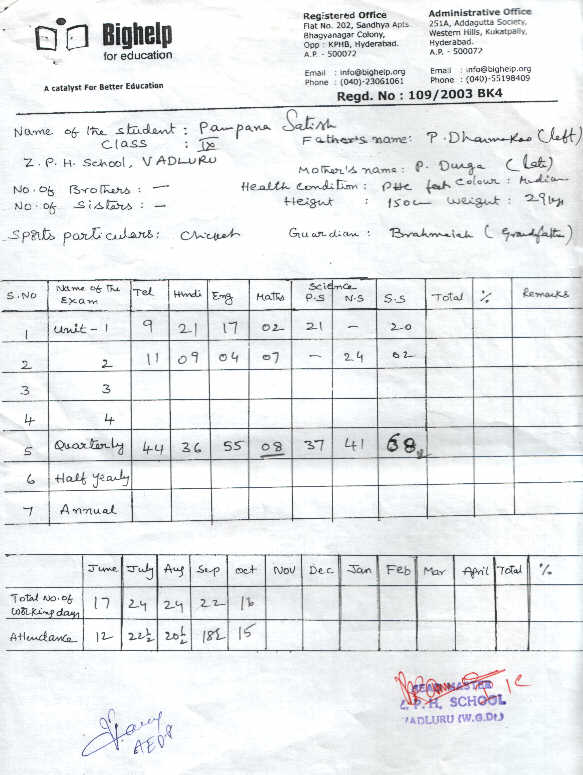 Bighelp
for education
A catalyst For Better Education
Registered Office
Flat No. 202, Sandhya Apts
Bhagyanagar Colony,
Opp : KPHB, Hyderabad.
A.P. - 500072
Email : info@bighelp.org
Phone : (040)-23061061
Administrative Office
251A, Addagutta Society,
Western Hills, Kukatpally,
Hyderabad.
A.P. - 500072
Email : info@bighelp.org
Phone : (040)-55198409
Regd. No : 109/2003 BK4
Name of the student : Pampana Satish
Class : IX
Father's name: P. Dharmarao (left)
Z. P. H. School, VADLURU
Mother's name: P. Durga (late)
No. of Brothers : —
Health condition : PHC Colour :
No. of Sisters : —
Height : 150cm Weight : 29kg
Sports particulers: Cricket
Guardian : Brahmaiah (Grandfather)
S.NO Name of the Exam Tel Hindi Eng Maths Science P.S N.S S.S Total % Remarks
1 Unit - 1 9 21 17 02 21 - 20
2 2 11 09 04 07 - 24 02
3 3
4 4
5 Quarterly 44 36 55 08 37 41 68
6 Half yearly
7 Annual
June July Aug Sep Oct Nov Dec Jan Feb Mar April Total %
Total No. of working days 17 24 24 22 16
Attendance 12 22½ 20½ 18½ 15
HEADMASTER
Z.P.H. SCHOOL
VADLURU (W.G.Dt.)